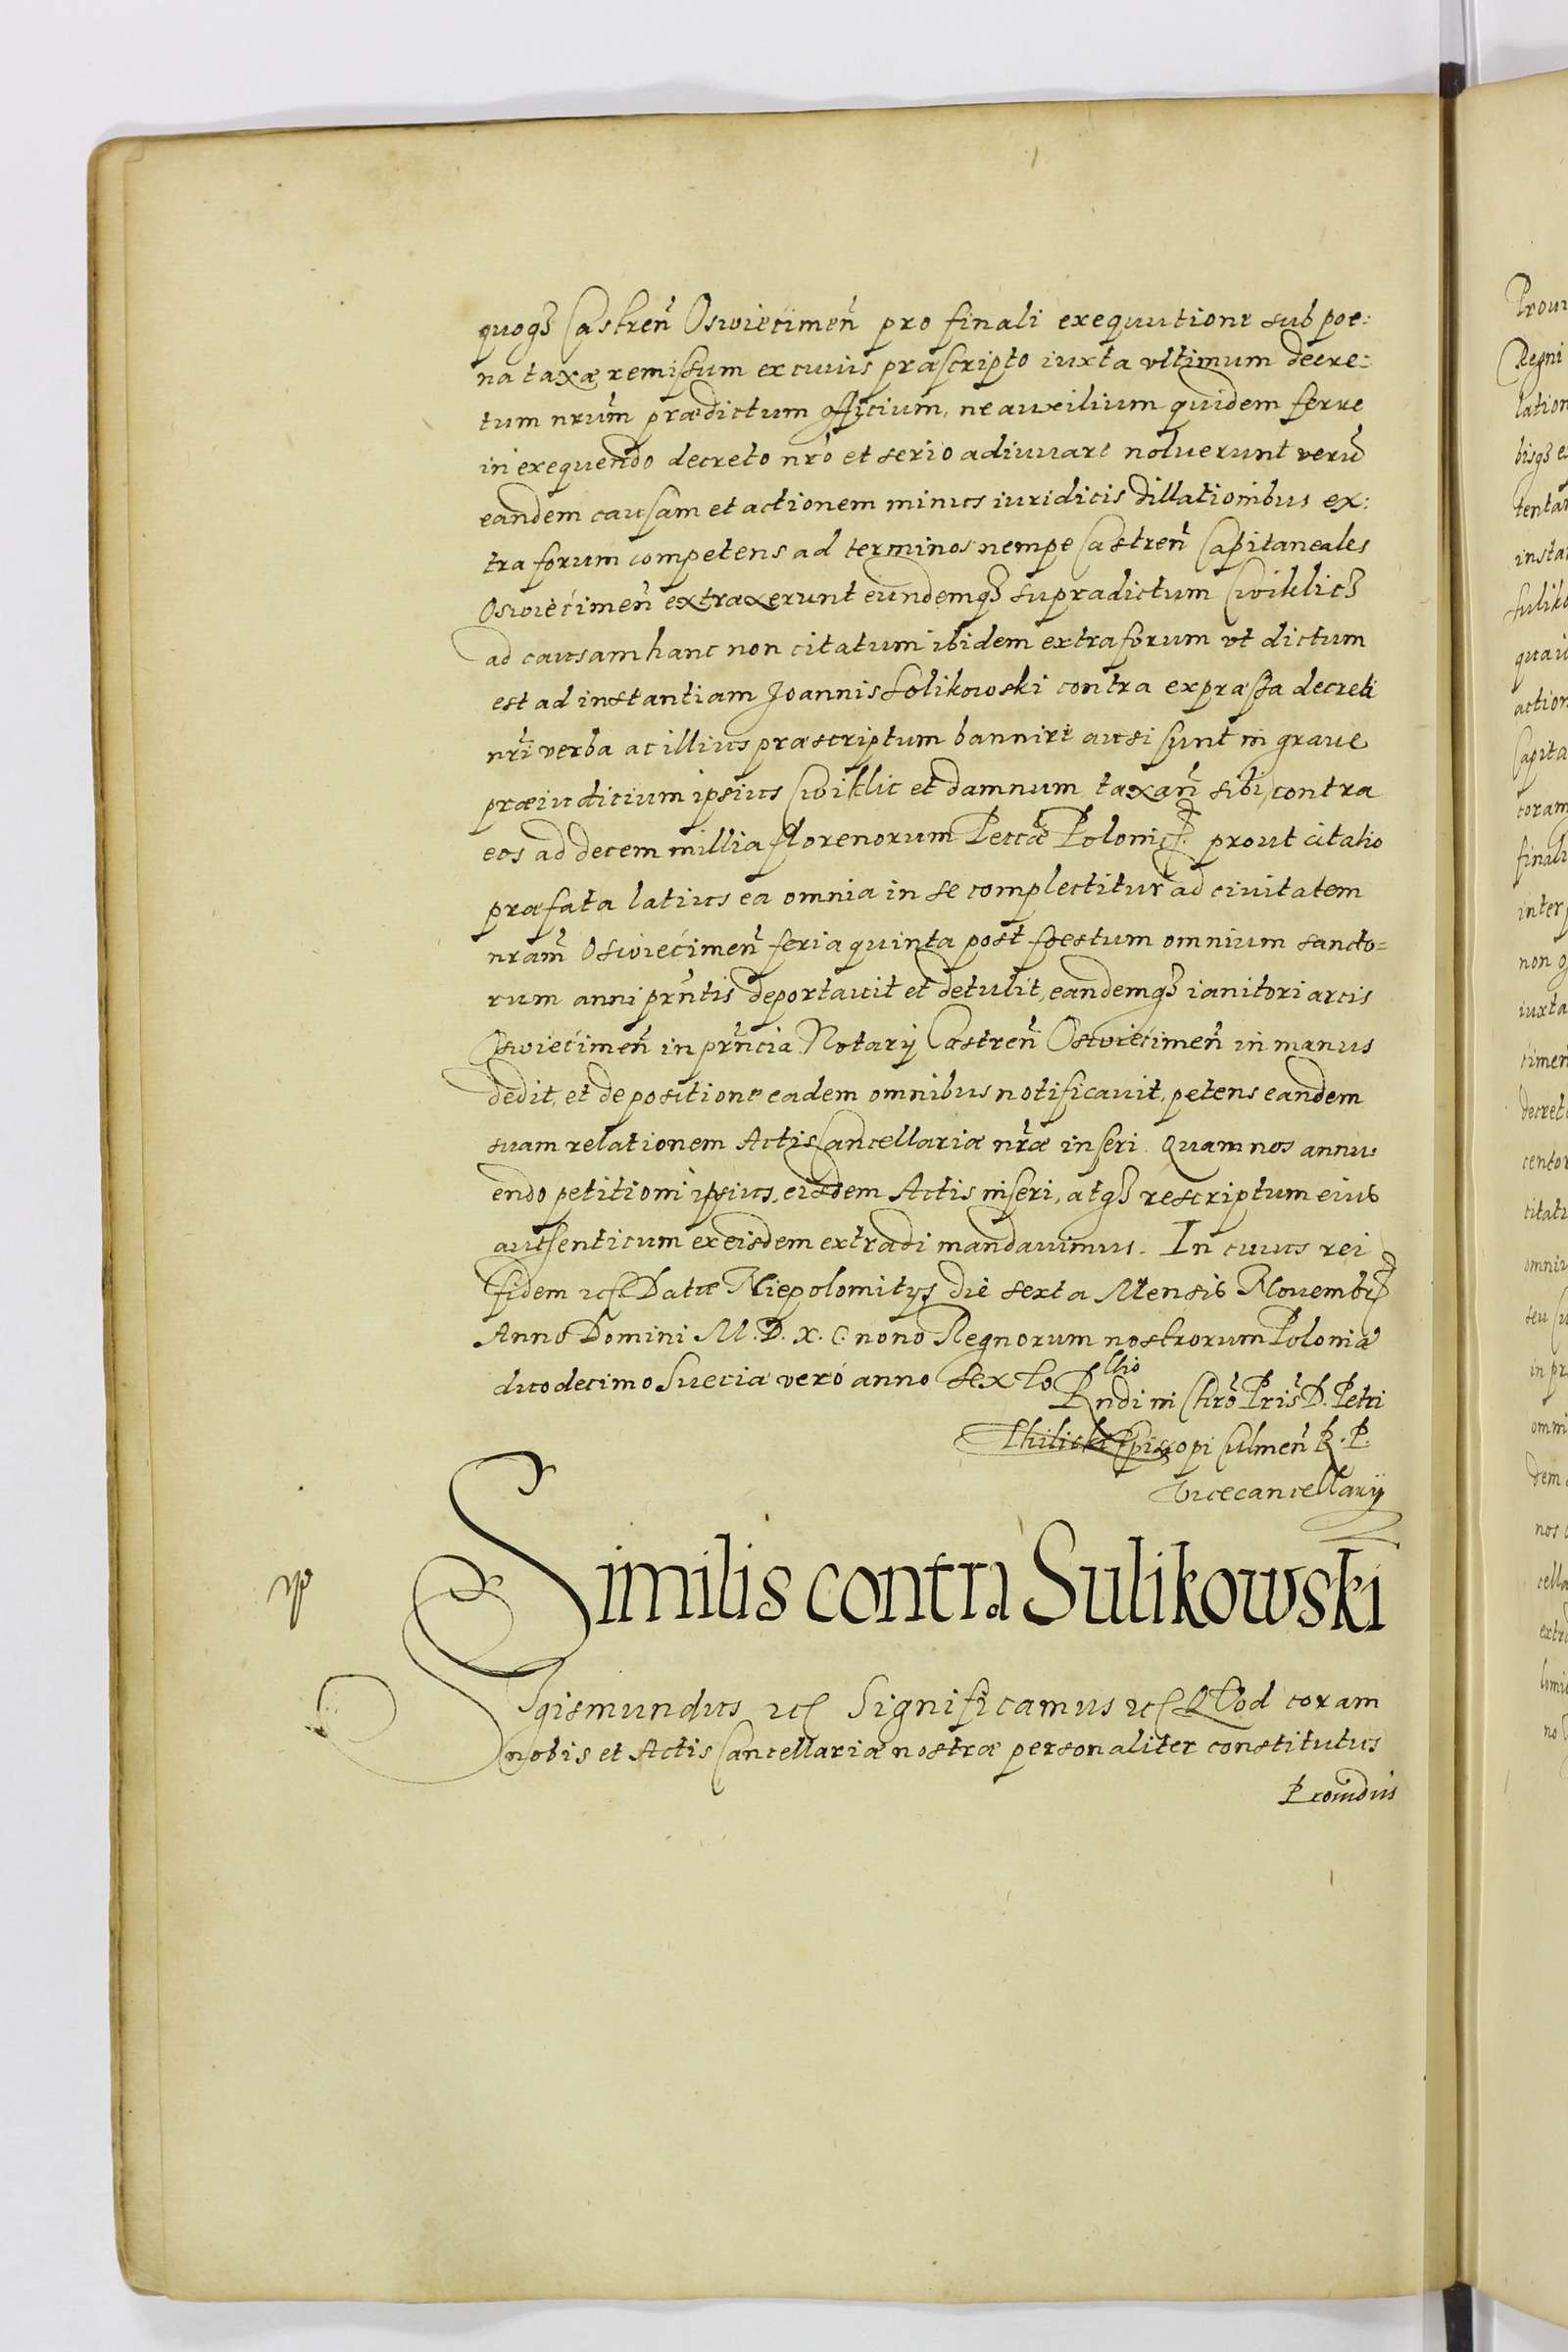 quoq3 Castren̄ Oswiecimen̄ pro finali exequutione sub poe:
na taxæ remissum ex cuius præscripto iuxta vltimum decre:
tum nrūm prædictum officium, ne auxilium quidem ferre
in exequendo decreto nrō et serio adiuuare noluerunt verū
eandem causam et actionem minus iuridicis dillationibus ex:
tra forum competens ad terminos nempe Castren̄ Capitaneales
Oswiećimen̄ extraxerunt eundemq3 supradictum Cwiklic3
ad causam hanc non citatum ibidem extra forum vt dictum
est ad instantiam Joannis Solikowski contra expræssa decreti
nrī verba ac illius præscriptum bannire ausi sunt in graue
præiudicium ipsius Cwiklic et damnum taxan̄ sibi, contra
eos ad decem millia florenorum Peccæ Polonic. prout citatio
præfata latius ea omnia in se complectitur ad ciuitatem
nram̄ Oswiećimen̄ feria quinta post foestum omnium sancto=
rum anni prn̄tis deportauit et detulit, eandemq3 ianitori arcis
Oswiećimen̄ in prn̄cia Notarij Castren̄ Oswiećimen̄ in manus
dedit, et de positione eadem omnibus notificauit, petens eandem
suam relationem Actis Cancellariæ nr̄æ inseri. Quam nos annu:
endo petitioni ipsius, eisdem Actis inseri, atq3 rescriptum eius
autsenticum ex eisdem extradi mandauimus. In cuius rei
fidem etc Datæ Niepolomitijs die sexta Mensis Nouembr
Anno Domini M. D. X. C. nono Regnorum nostrorum Poloniæ
duodecimo Sueciæ veró anno sexto
Rndi in Chrō Pris̄ D. Petri
Thilicki Episcopi Culmen̄ R. P.
Vicecancellarij
Similis contra Sulikowski
Sigismundus etc Significamus etc Quod coram
nobis et Actis Cancellariæ nostræ personaliter constitutus
Prouidus